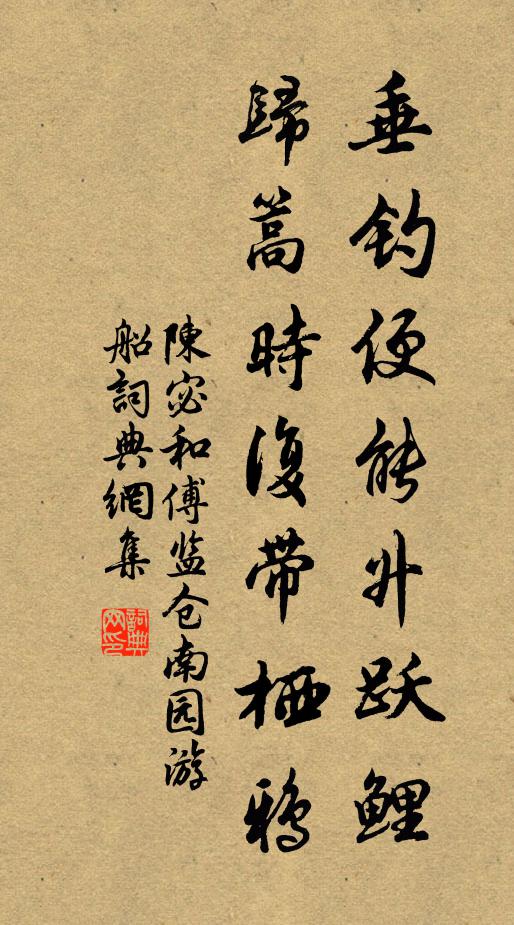 垂钓便能升跃鲤
歸篙時復带栖鴉
陳宓和傅监仓南园游
船詞典網集
詞典网印